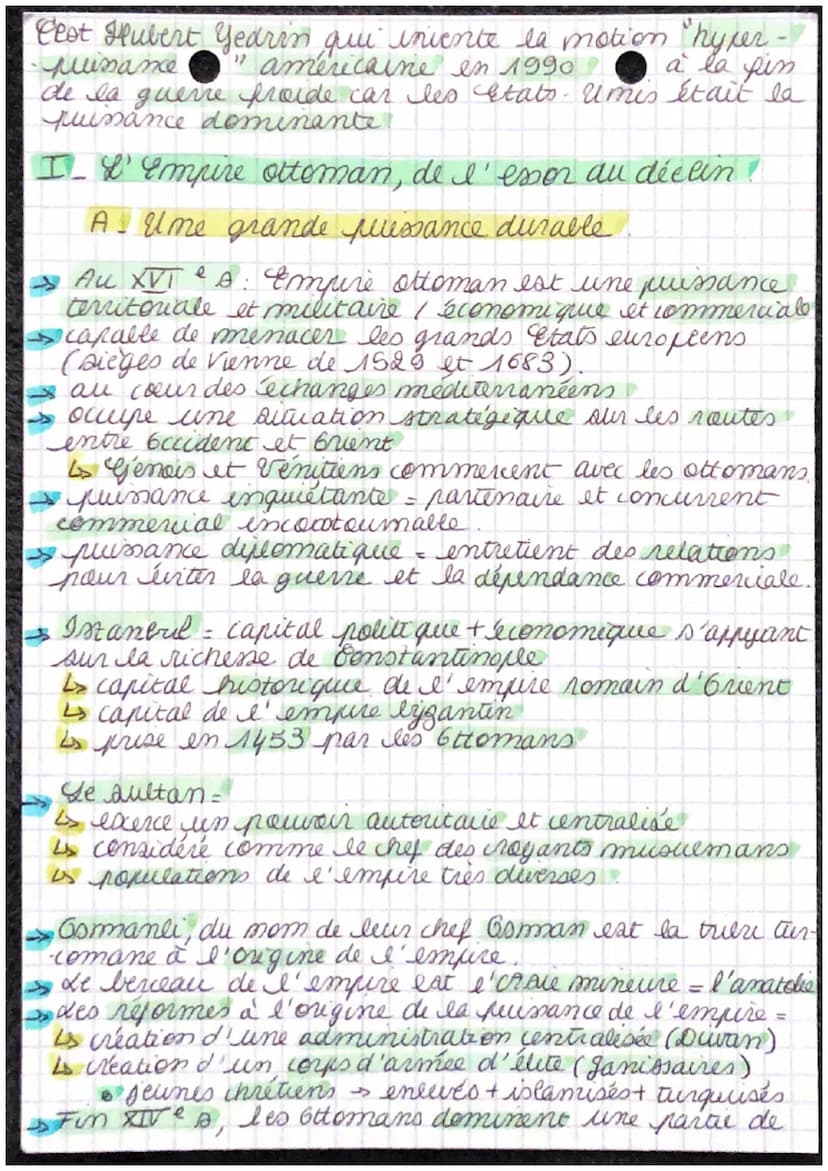 C'est Hubert Vedrin qui invente la notion "hyper-
puissance" américaine en 1990 à la fin
de la guerre froide car les Etats-Unis était la
puissance dominante
I - L'Empire ottoman, de l'essor au déclin !
A - Une grande puissance durable.
→ Au XVIe s : Empire ottoman est une puissance
territoriale et militaire / économique et commerciale
→ capable de menacer les grands Etats européens
(sièges de Vienne de 1529 et 1683).
→ au cœur des échanges méditerranéens
→ occupe une situation stratégique sur les routes
entre Occident et Orient
↳ Génois et Vénitiens commercent avec les ottomans.
→ puissance inquiétante = partenaire et concurrent
commercial incocotournable.
→ puissance diplomatique = entretient des relations
pour éviter la guerre et la dépendance commerciale.
→ Istanbul = capital politique + économique s'appuyant
sur la richesse de Constantinople
↳ capital historique de l'empire romain d'Orient
↳ capital de l'empire byzantin
↳ prise en 1453 par les Ottomans
→ Le sultan =
↳ exerce un pouvoir autoritaire et centralisé
↳ considéré comme le chef des croyants musulmans
↳ populations de l'empire très diverses.
→ Osmanli, du nom de leur chef Osman est la tribu tur-
comane à l'origine de l'empire.
→ Le berceau de l'empire est l'Asie mineure = l'anatolie
→ des réformes à l'origine de la puissance de l'empire =
↳ création d'une administration centralisée (Divan)
↳ création d'un corps d'armée d'élite (Janissaires)
• jeunes chrétiens → enlevés + islamisés + turquisés
→ Fin XIVe s, les Ottomans dominent une partie de